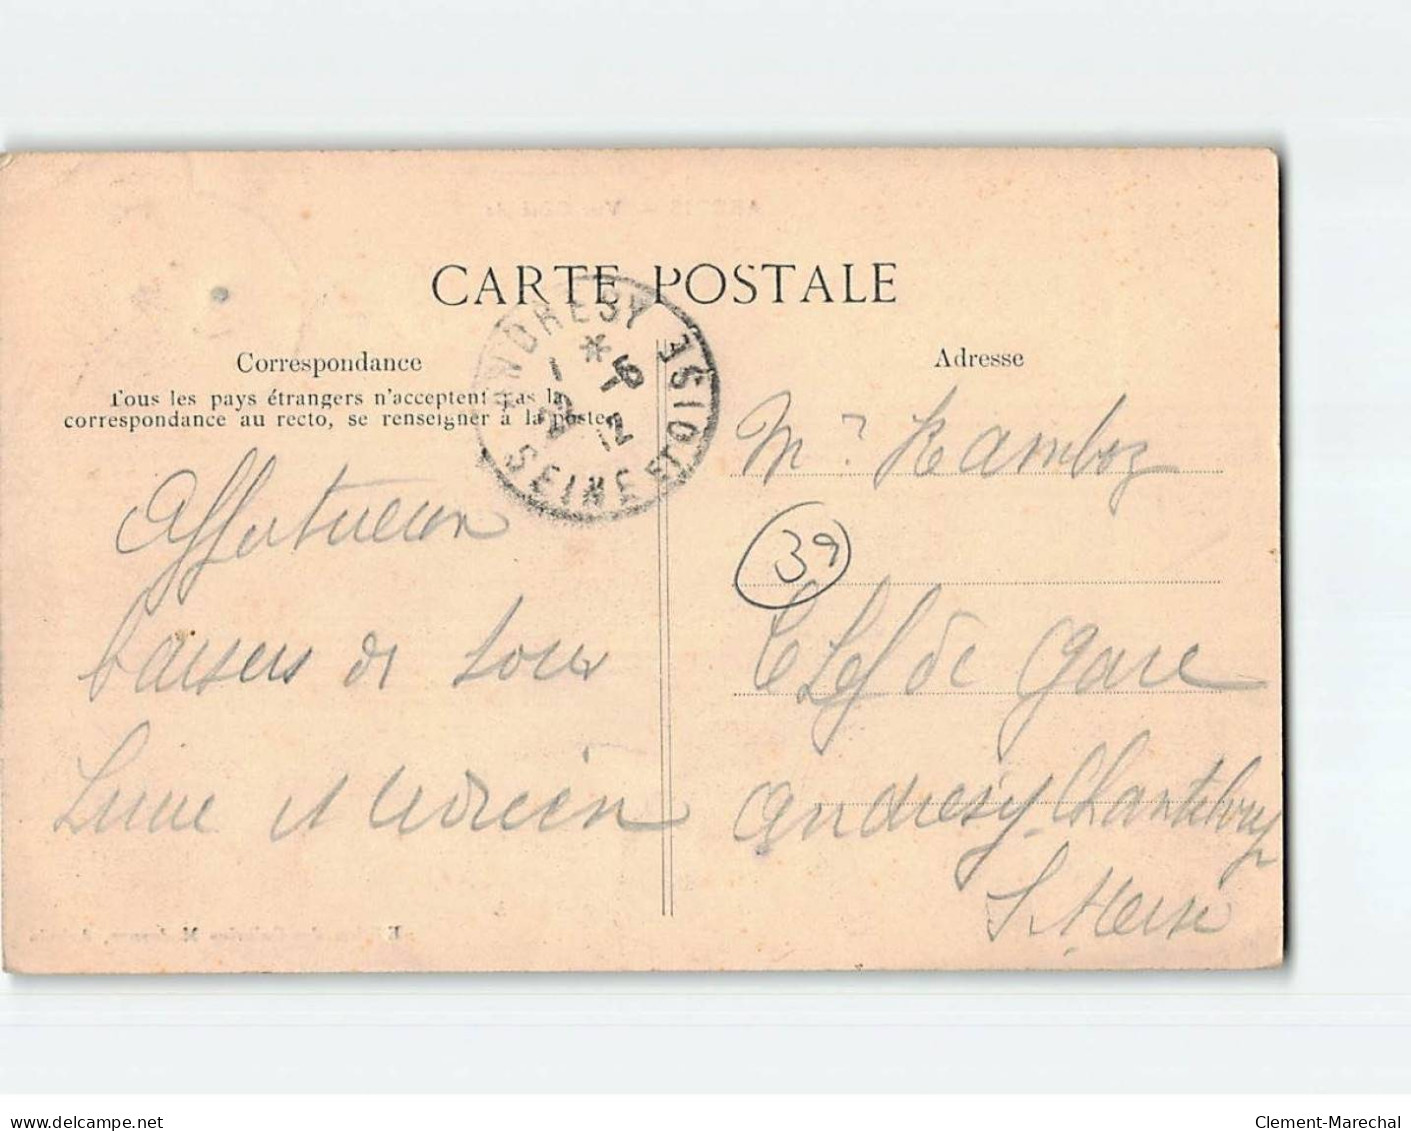 CARTE POSTALE
Correspondance
Tous les pays étrangers n'acceptent pas la
correspondance au recto, se renseigner à la poste
ANDRESY
SEINE ET OISE
Affectueux
baisers de tous
Lucie et Adrien
Adresse
Mr Ramboz
39
Chef de Gare
Andresy Chanteloup
S.
delcampe.net
Clement-Marechal